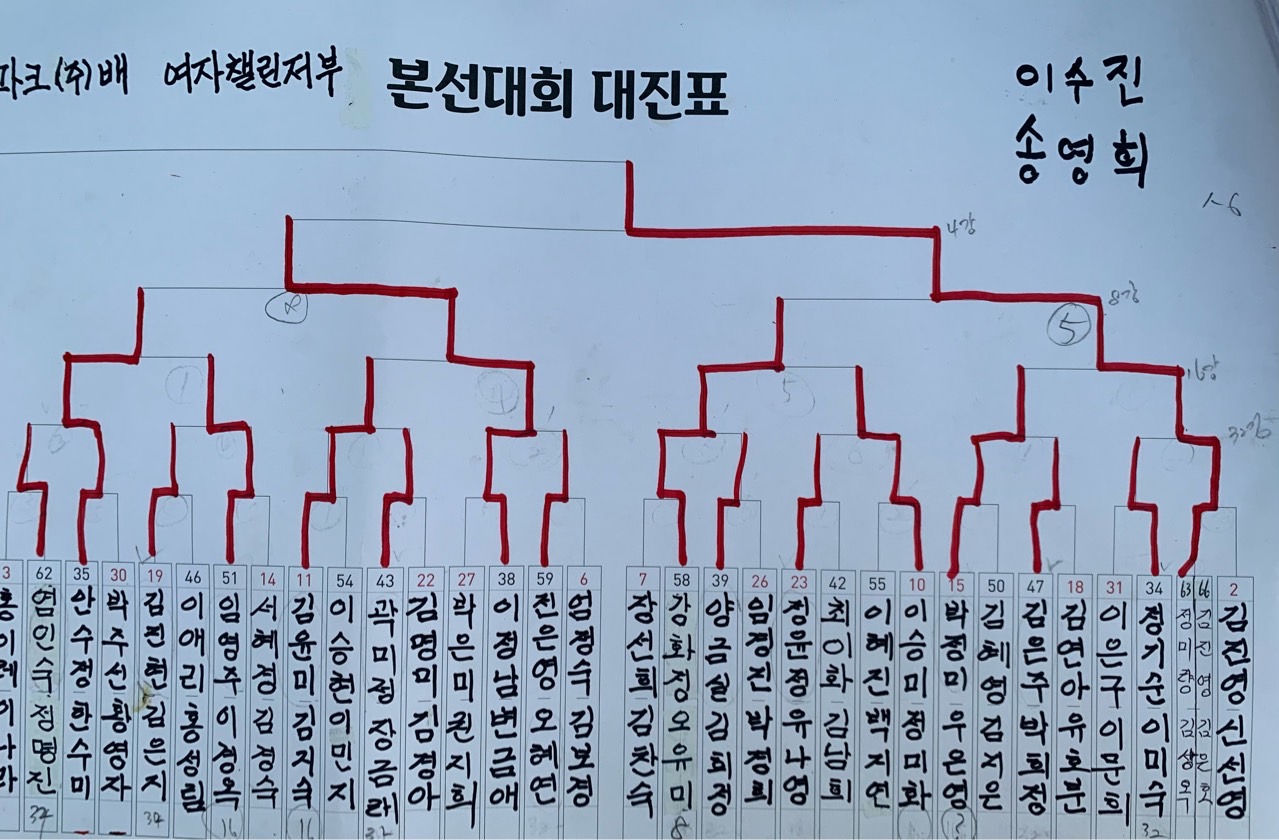 파크(주)배 여자챌린저부 본선대회 대진표
이수진
송영희
4강
8
8강
5
16강
32강
3 62 35 30 19 46 51 14 11 54 43 22 27 38 59 6 7 58 39 26 23 42 55 10 15 50 47 18 31 34 63 66 2
염인숙 정명진
안수정 한수미
박주선 황영자
김진현 김은지
이애리 홍성림
임영주 이정옥
서혜정 김경숙
김윤미 김지숙
이승현 이민지
곽미정 장금래
김명미 김경아
박은미 권지희
이정남 변금애
전은영 오혜연
엄정숙 김보정
장선희 김찬숙
강화정 우유미
양금실 김희정
임정진 박정희
정윤정 유나영
최이화 김남희
이혜진 백지연
이승미 정미화
박정미 우은영
김혜영 김지은
김은주 박희정
김연아 유호분
이은구 이문희
정기순 이미숙
정미량 김상옥
김진영 김은호
김진영 신선영